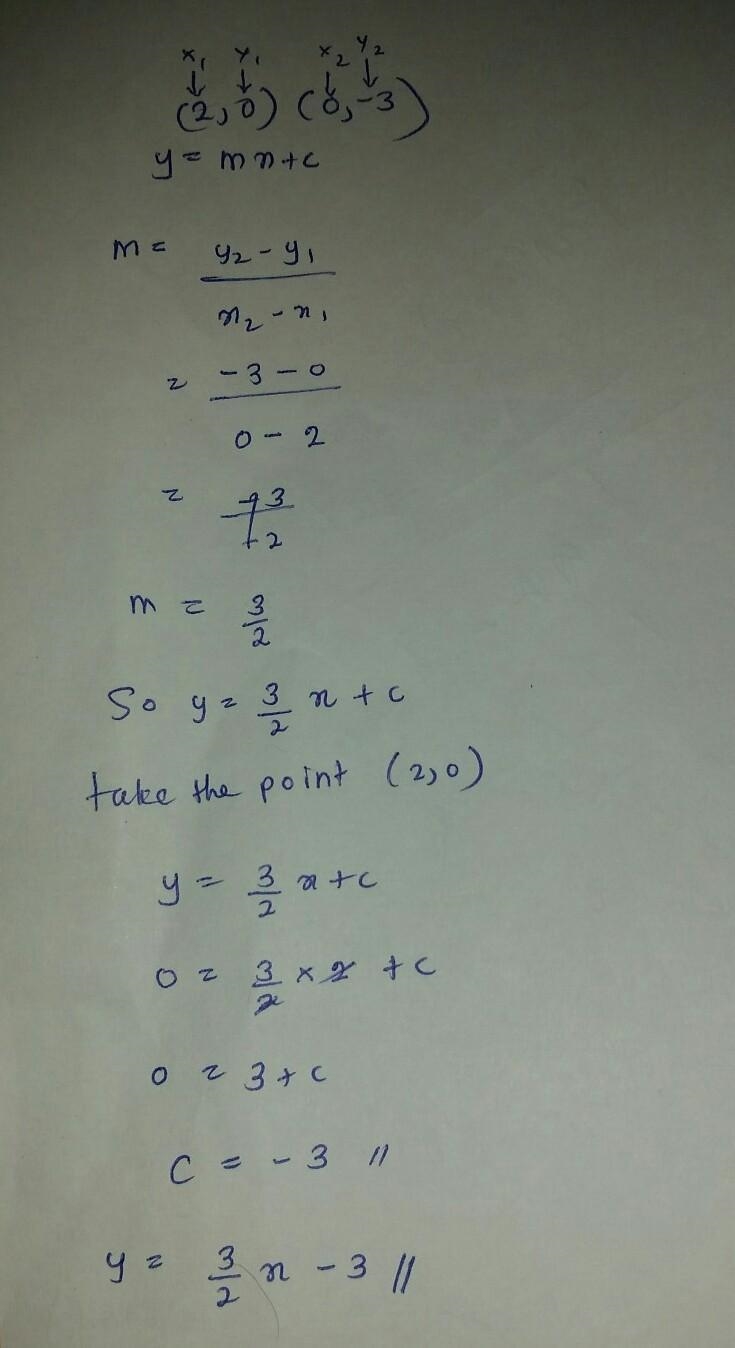 x₁ y₁ x₂ y₂
↓ ↓ ↓ ↓
(2,0) (0,-3)
y = mx+c
m = y₂ - y₁
x₂ - x₁
= -3 - 0
0 - 2
= -3
-2
m = 3/2
So y = 3/2 x + c
take the point (2,0)
y = 3/2 x + c
0 = 3/2 × 2 + c
0 = 3 + c
C = -3 //
y = 3/2 x - 3 //